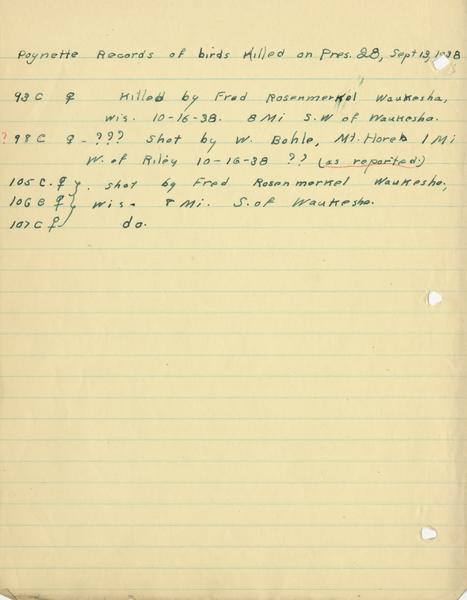 Poynette Records of birds killed on Pres. 28, Sept 13, 1938
93 C ♀ Killed by Fred Rosenmerkel Waukesha,
Wis. 10-16-38. 8 Mi S.W of Waukesha.
? 98 C ♀ - ??? Shot by W. Bohle, Mt. Horeb 1 Mi
W. of Riley 10-16-38 ?? (as reported.)
105 C. ♀ . shot by Fred Rosenmerkel Waukesha,
106 B ♀ } Wis - 8 Mi. S. of Waukesha.
107 C ♀ do.